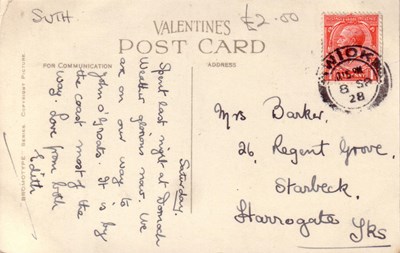 SUTH
£2.00
VALENTINE'S
POST CARD
FOR COMMUNICATION
ADDRESS
WICK
8 SP
28
Saturday.
Spent last night at Dornoch
Weather glorious now. We
are on our way to
John o' Groats. It is by
the coast most of the
way. Love from both
Edith
Mrs Barker,
26, Regent Grove,
Starbeck,
Harrogate Yks
BROMOTYPE SERIES COPYRIGHT PICTURE